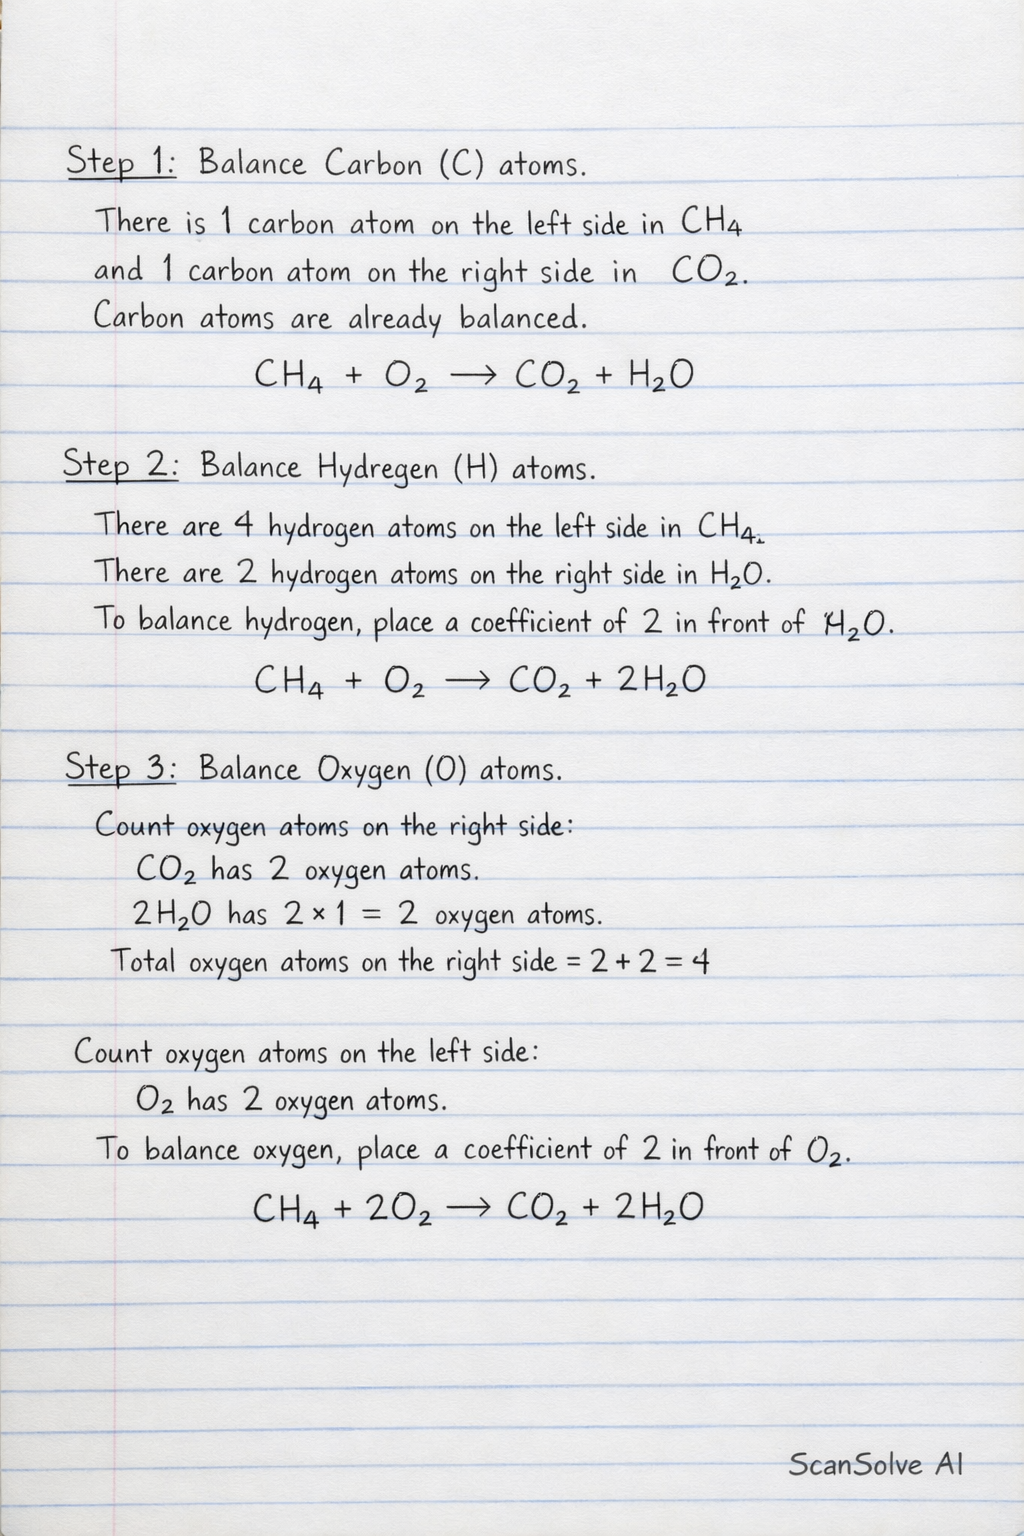 Step 1: Balance Carbon (C) atoms.
There is 1 carbon atom on the left side in CH₄
and 1 carbon atom on the right side in CO₂.
Carbon atoms are already balanced.
CH₄ + O₂ → CO₂ + H₂O
Step 2: Balance Hydregen (H) atoms.
There are 4 hydrogen atoms on the left side in CH₄.
There are 2 hydrogen atoms on the right side in H₂O.
To balance hydrogen, place a coefficient of 2 in front of H₂O.
CH₄ + O₂ → CO₂ + 2H₂O
Step 3: Balance Oxygen (O) atoms.
Count oxygen atoms on the right side:
CO₂ has 2 oxygen atoms.
2H₂O has 2 × 1 = 2 oxygen atoms.
Total oxygen atoms on the right side = 2 + 2 = 4
Count oxygen atoms on the left side:
O₂ has 2 oxygen atoms.
To balance oxygen, place a coefficient of 2 in front of O₂.
CH₄ + 2O₂ → CO₂ + 2H₂O
ScanSolve AI